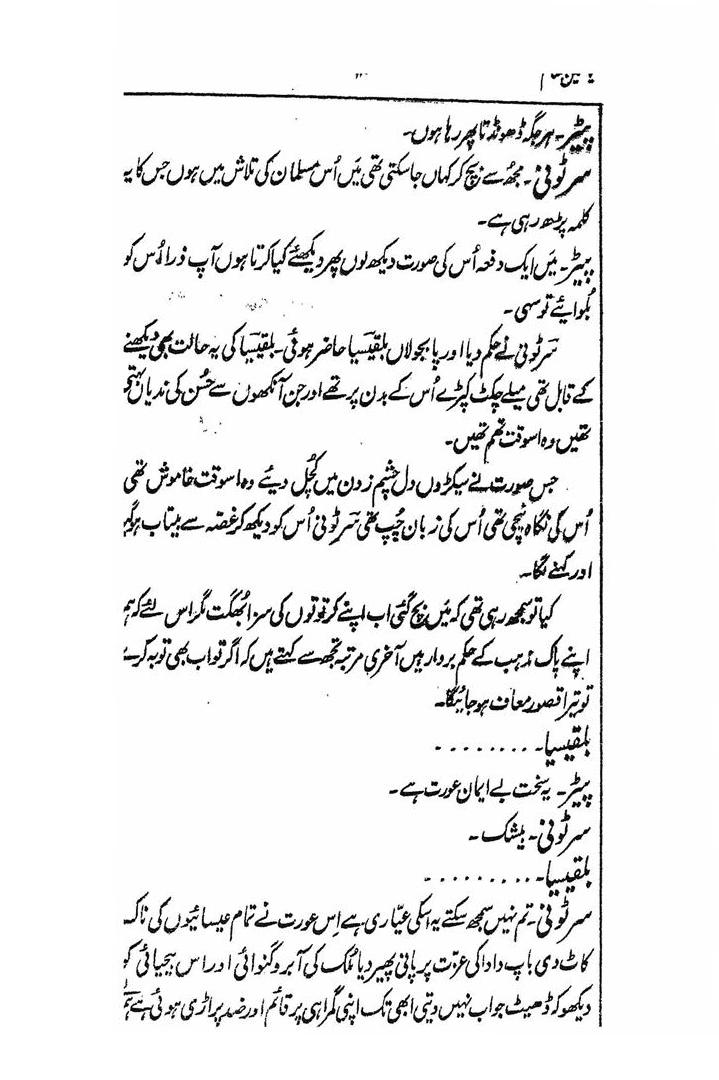 پیٹر۔ ہر جگہ ڈھونڈتا پھر رہا ہوں۔
سرٹونی۔ مجھ سے بچ کر کہاں جا سکتی تھی میں اُس مسلمان کی تلاش میں ہوں جس کا یہ
کلمہ پڑھ رہی ہے۔
پیٹر۔ میں ایک دفعہ اُس کی صورت دیکھ لوں پھر دیکھئے کیا کرتا ہوں آپ ذرا اُس کو
بُلوایئے تو سہی۔
سرٹونی نے حکم دیا اور پابجولاں بلقیسیا حاضر ہوئی۔ بلقیسیا کی یہ حالت بھی دیکھنے
کے قابل تھی میلے چکٹ کپڑے اُس کے بدن پر تھے اور جن آنکھوں سے حُسن کی ندیاں بہتی
تھیں وہ اسوقت تھم تھیں۔
جس صورت نے سیکڑوں دل چشم زدن میں کُچل دیئے وہ اسوقت خاموش تھی
اُس کی نگاہ نیچی تھی اُس کی زبان چُپ تھی سرٹونی اُس کو دیکھ کر غصہ سے بیتاب ہوگیا
اور کہنے لگا۔
کیا تو سمجھ رہی تھی کہ میں بچ گئی اب اپنے کرتوتوں کی سزا بُھگت مگر اس لئے کہ ہم
اپنے پاک مذہب کے حکم بردار ہیں آخری مرتبہ تجھ سے کہتے ہیں کہ اگر تو اب بھی توبہ کرے
تو تیرا قصور معاف ہو جائیگا۔
بلقیسیا۔ ۔ ۔ ۔ ۔ ۔ ۔ ۔ ۔ ۔
پیٹر۔ یہ سخت بے ایمان عورت ہے۔
سرٹونی۔ بیشک۔
بلقیسیا۔ ۔ ۔ ۔ ۔ ۔ ۔ ۔ ۔ ۔ ۔
سرٹونی۔ تم نہیں سمجھ سکتے یہ اسکی عیّاری ہے اِس عورت نے تمام عیسائیوں کی ناک
کاٹ دی باپ دادا کی عزّت پر پانی پھیر دیا مُلک کی آبرو گنوائی اور اس بیحیائی کو
دیکھو کہ ڈھیٹ جواب نہیں دیتی ابھی تک اپنی گمراہی پر قائم اور ضد پر اڑی ہوئی ہے ہم